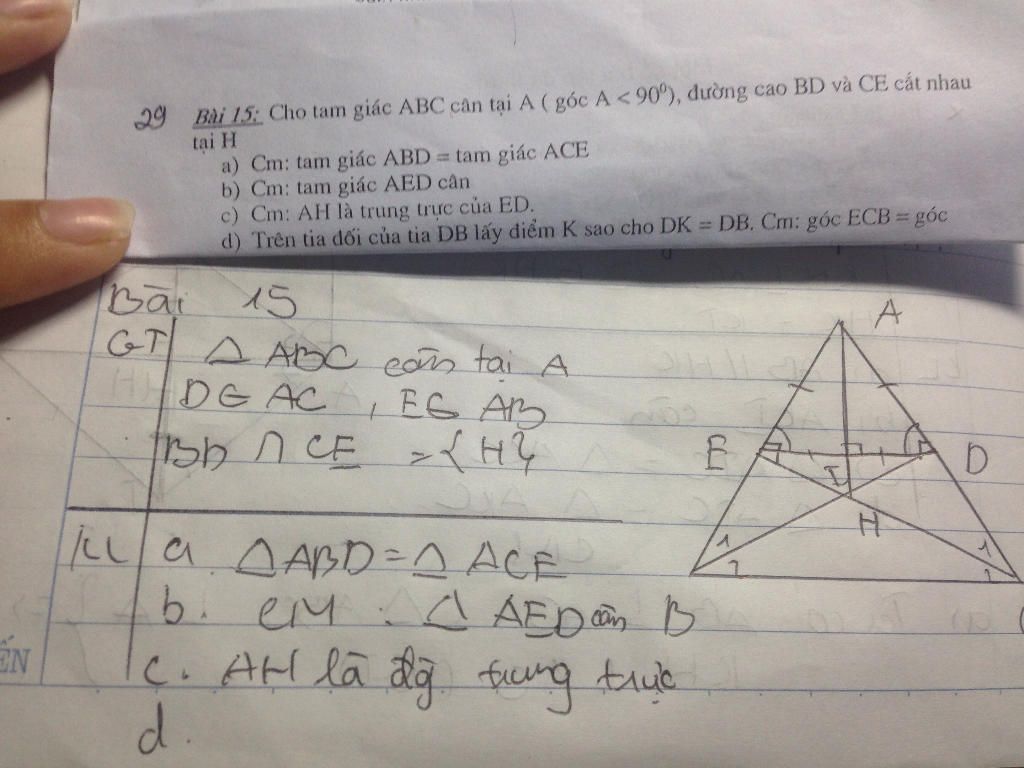 29 Bài 15: Cho tam giác ABC cân tại A ( góc A < 90⁰), đường cao BD và CE cắt nhau
tại H
a) Cm: tam giác ABD = tam giác ACE
b) Cm: tam giác AED cân
c) Cm: AH là trung trực của ED.
d) Trên tia đối của tia DB lấy điểm K sao cho DK = DB. Cm: góc ECB = góc
Bài 15
GT △ ABC cân tại A
D∈ AC , E∈ AB
BD ∩ CE = {H}
KL a. △ABD = △ ACE
b. CM : △ AED cân
c. AH là đg trung trực
d.
A
E D
I
H
1 1
2 2
B C
ẾN